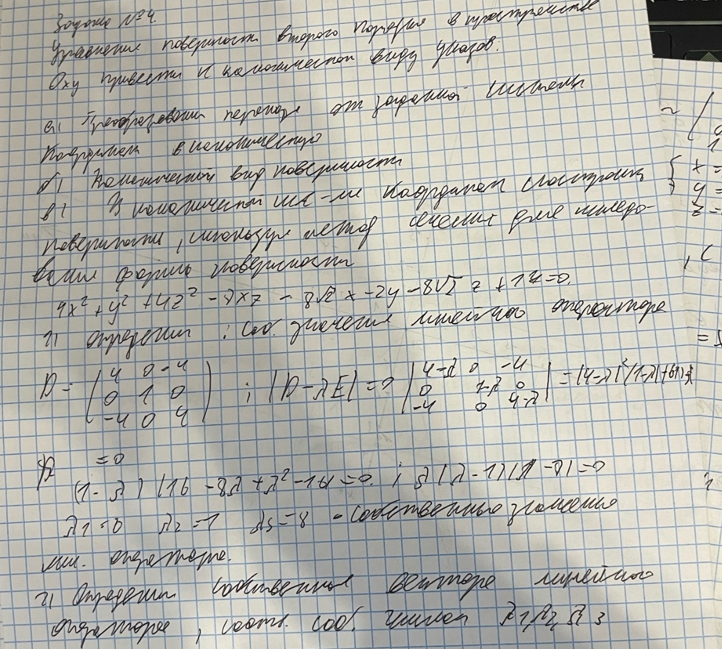 Задача №4.
Уравнение поверхности второго порядка в пространстве
Oxy привести к каноническому виду указав.
а) Преобразования перехода от заданной системы
координат в каноническую
б) Канонический вид поверхности
в) В канонической сис-ме координат построить
поверхность, используя метод сечений для исследо-
вания формы поверхности
4x² + y² + 4z² - 8xz - 8√2 x - 2y - 8√2 z + 17 = 0.
1) определим: соб. значения линейного оператора
D = (4 0 -4 0 1 0 -4 0 4) ; |D - λE| = |4-λ 0 -4 0 1-λ 0 -4 0 4-λ| = (4-λ)²(1-λ)
= 0
(1-λ)(16 - 8λ + λ² - 16) = 0 ; λ(λ-1)(λ-8) = 0
λ1 = 0 λ2 = 1 λ3 = 8 - собственные значения
лин. оператора.
2) Определим собственные вектора линейного
оператора, соотв. соб. числам λ1, λ2, λ3